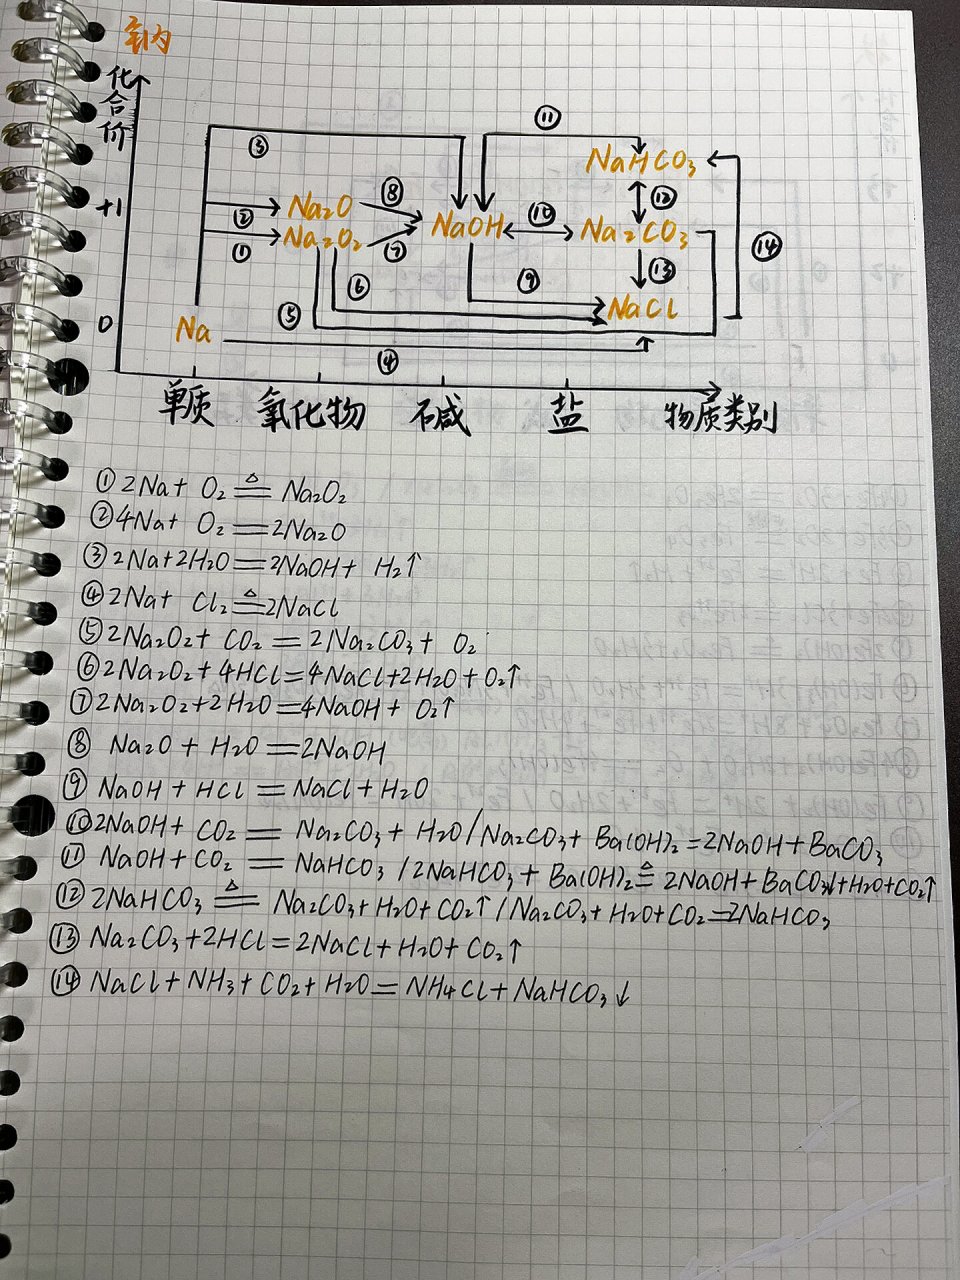 钠
化合价
⑪
③
NaHCO₃
+1
②
Na₂O
⑧
NaOH
⑩
Na₂CO₃
⑫
①
Na₂O₂
⑦
⑭
⑥
⑨
⑬
⑤
NaCl
0
Na
④
单质 氧化物 碱 盐 物质类别
①2Na+ O₂ ≜ Na₂O₂
②4Na+ O₂ =2Na₂O
③2Na+2H₂O=2NaOH+ H₂↑
④2Na+ Cl₂ ≜ 2NaCl
⑤2Na₂O₂+ CO₂ = 2Na₂CO₃+ O₂
⑥2Na₂O₂+4HCl=4NaCl+2H₂O+O₂↑
⑦2Na₂O₂+2H₂O=4NaOH+ O₂↑
⑧ Na₂O+H₂O=2NaOH
⑨NaOH+HCl=NaCl+H₂O
⑩2NaOH+ CO₂ = Na₂CO₃+H₂O/Na₂CO₃+Ba(OH)₂=2NaOH+BaCO₃
⑪ NaOH+CO₂ = NaHCO₃ /2NaHCO₃+Ba(OH)₂ ≜ 2NaOH+BaCO₃↓+H₂O+CO₂↑
⑫2NaHCO₃ ≜ Na₂CO₃+H₂O+CO₂↑/Na₂CO₃+H₂O+CO₂=2NaHCO₃
⑬Na₂CO₃+2HCl=2NaCl+H₂O+CO₂↑
⑭NaCl+NH₃+CO₂+H₂O=NH₄Cl+NaHCO₃↓